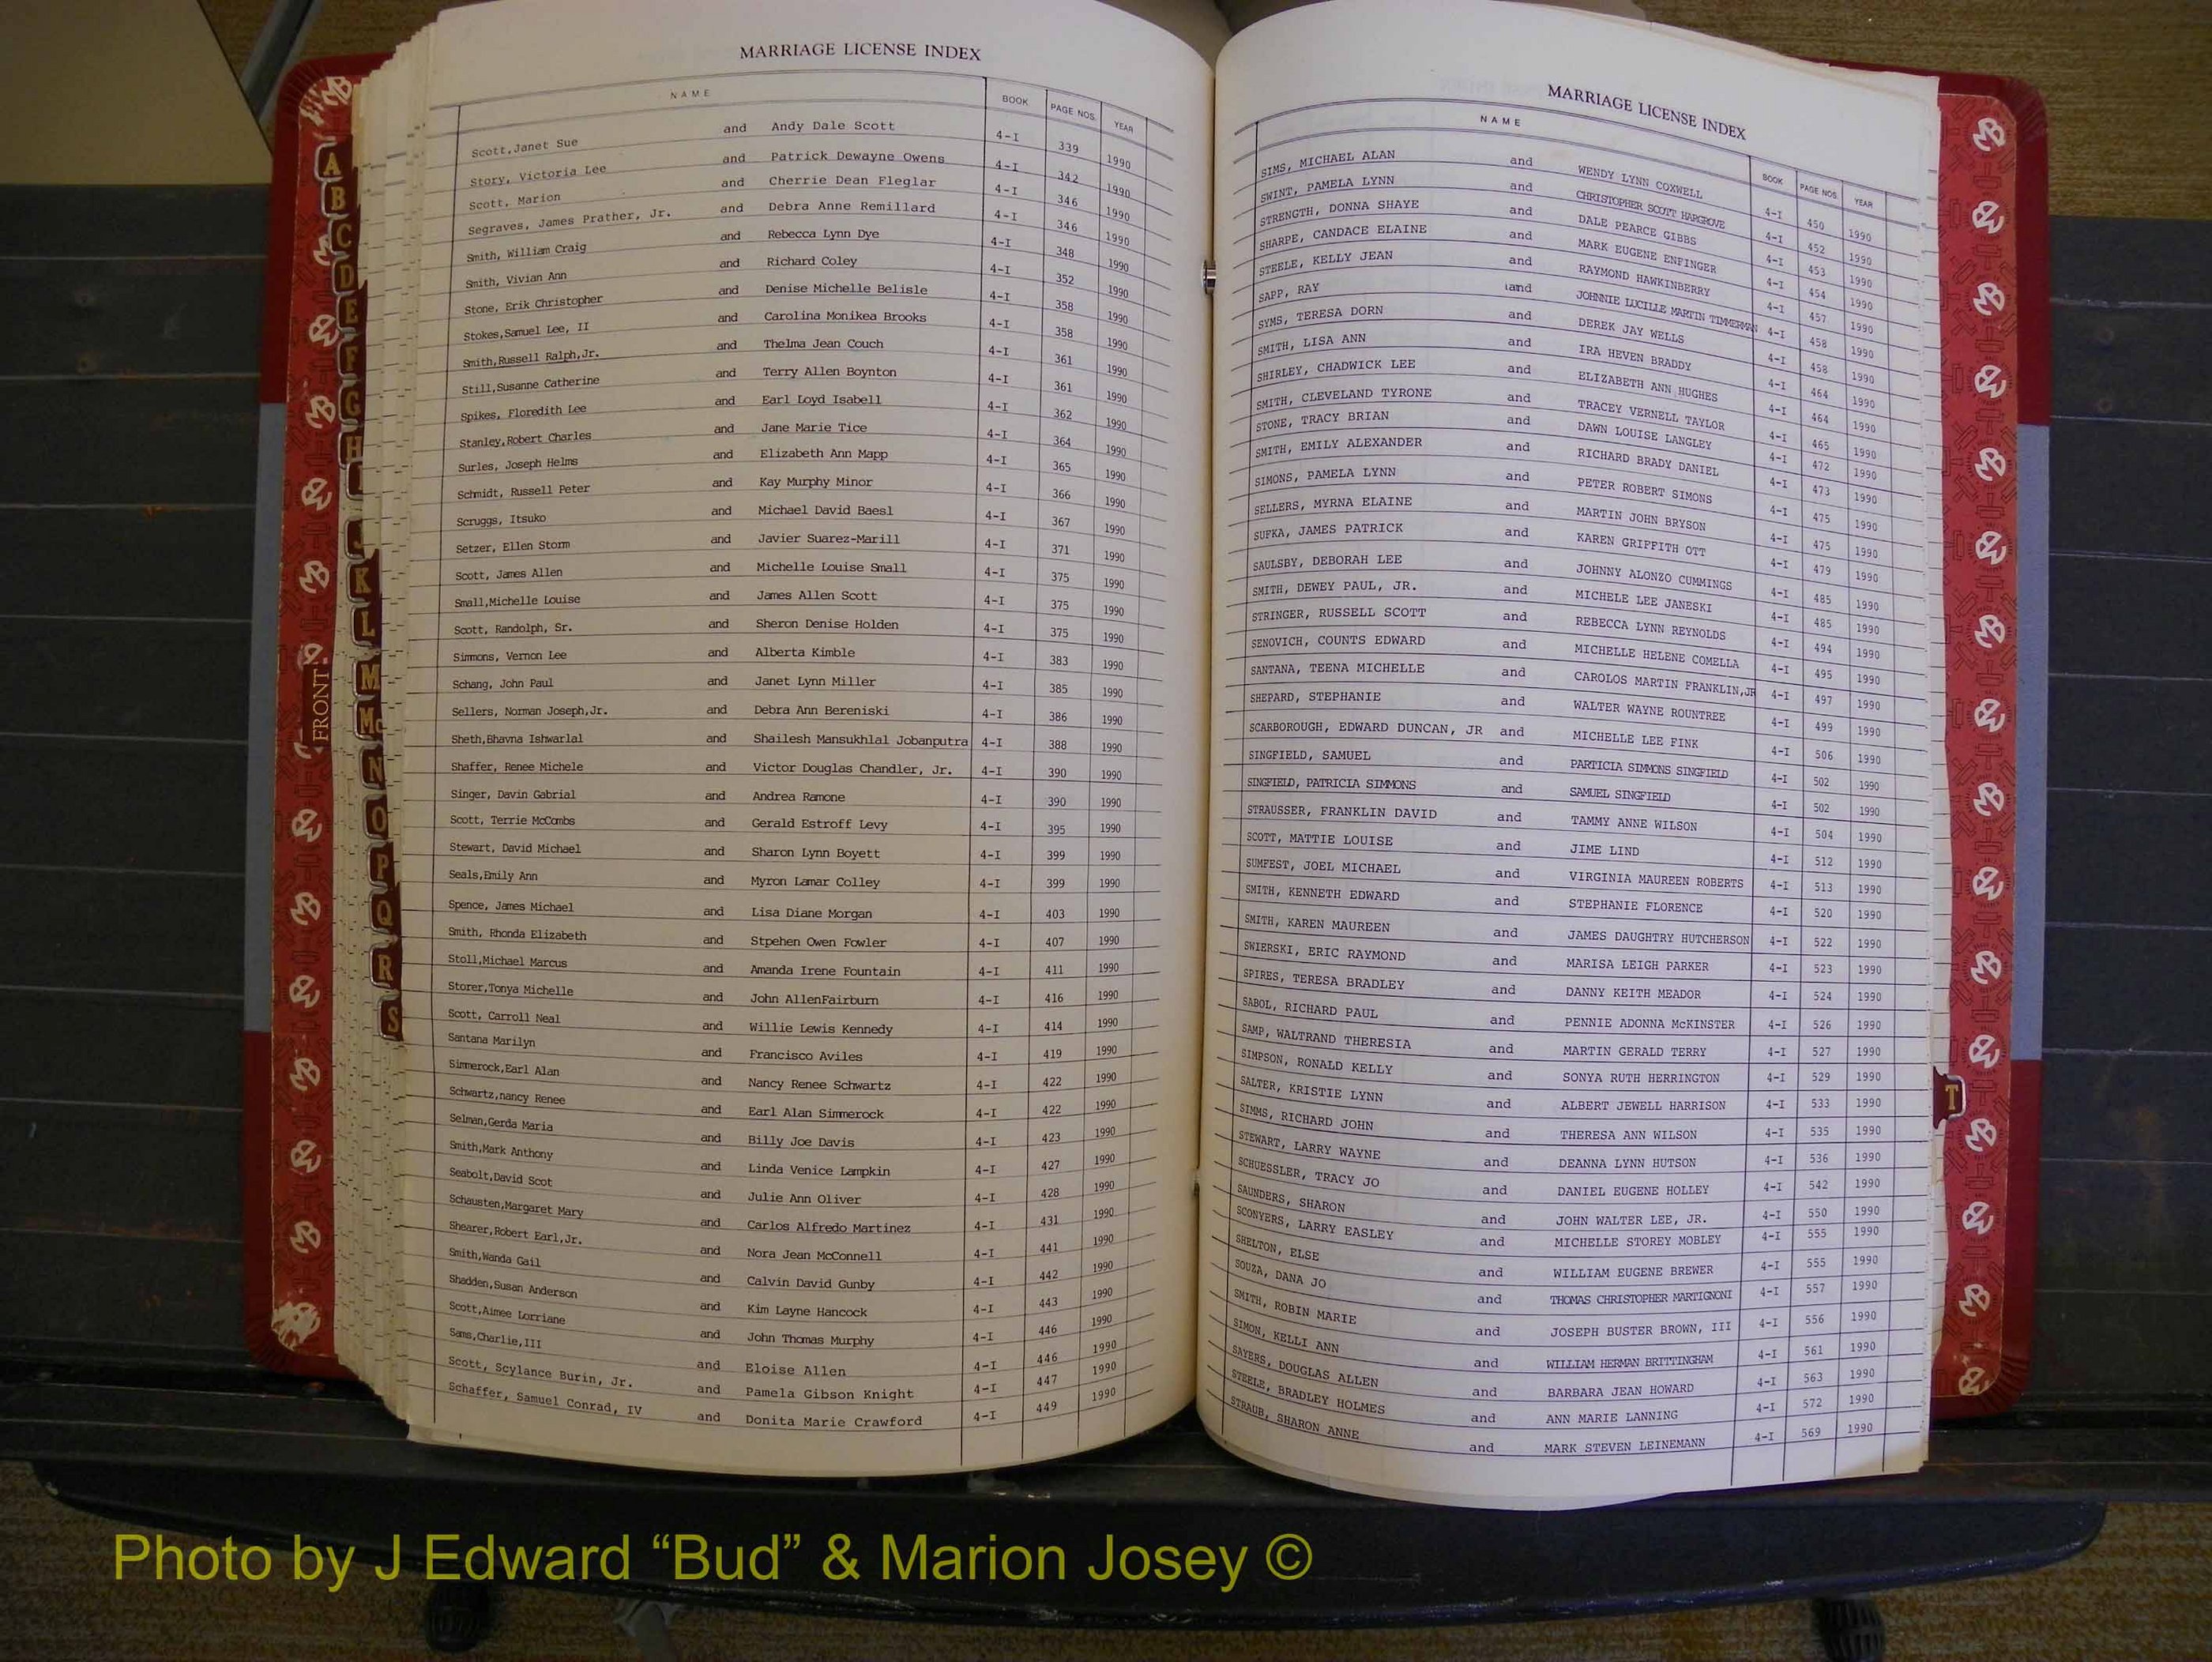 MARRIAGE LICENSE INDEX
NAME BOOK PAGE NOS. YEAR
Scott,Janet Sue and Andy Dale Scott 4-I 339 1990
Story, Victoria Lee and Patrick Dewayne Owens 4-I 342 1990
Scott, Marion and Cherrie Dean Fleglar 4-I 346 1990
Segraves, James Prather, Jr. and Debra Anne Remillard 4-I 346 1990
Smith, William Craig and Rebecca Lynn Dye 4-I 348 1990
Smith, Vivian Ann and Richard Coley 4-I 352 1990
Stone, Erik Christopher and Denise Michelle Belisle 4-I 358 1990
Stokes,Samuel Lee, II and Carolina Monikea Brooks 4-I 358 1990
Smith,Russell Ralph,Jr. and Thelma Jean Couch 4-I 361 1990
Still,Susanne Catherine and Terry Allen Boynton 4-I 361 1990
Spikes, Floredith Lee and Earl Loyd Isabell 4-I 362 1990
Stanley,Robert Charles and Jane Marie Tice 4-I 364 1990
Surles, Joseph Helms and Elizabeth Ann Mapp 4-I 365 1990
Schmidt, Russell Peter and Kay Murphy Minor 4-I 366 1990
Scruggs, Itsuko and Michael David Baesl 4-I 367 1990
Setzer, Ellen Storm and Javier Suarez-Marill 4-I 371 1990
Scott, James Allen and Michelle Louise Small 4-I 375 1990
Small,Michelle Louise and James Allen Scott 4-I 375 1990
Scott, Randolph, Sr. and Sheron Denise Holden 4-I 375 1990
Simmons, Vernon Lee and Alberta Kimble 4-I 383 1990
Schang, John Paul and Janet Lynn Miller 4-I 385 1990
Sellers, Norman Joseph,Jr. and Debra Ann Bereniski 4-I 386 1990
Sheth,Bhavna Ishwarlal and Shailesh Mansukhlal Jobanputra 4-I 388 1990
Shaffer, Renee Michele and Victor Douglas Chandler, Jr. 4-I 390 1990
Singer, Davin Gabrial and Andrea Ramone 4-I 390 1990
Scott, Terrie McCombs and Gerald Estroff Levy 4-I 395 1990
Stewart, David Michael and Sharon Lynn Boyett 4-I 399 1990
Seals,Emily Ann and Myron Lamar Colley 4-I 399 1990
Spence, James Michael and Lisa Diane Morgan 4-I 403 1990
Smith, Rhonda Elizabeth and Stpehen Owen Fowler 4-I 407 1990
Stoll,Michael Marcus and Amanda Irene Fountain 4-I 411 1990
Storer,Tonya Michelle and John AllenFairburn 4-I 416 1990
Scott, Carroll Neal and Willie Lewis Kennedy 4-I 414 1990
Santana Marilyn and Francisco Aviles 4-I 419 1990
Simmerock,Earl Alan and Nancy Renee Schwartz 4-I 422 1990
Schwartz,nancy Renee and Earl Alan Simmerock 4-I 422 1990
Selman,Gerda Maria and Billy Joe Davis 4-I 423 1990
Smith,Mark Anthony and Linda Venice Lampkin 4-I 427 1990
Seabolt,David Scot and Julie Ann Oliver 4-I 428 1990
Schausten,Margaret Mary and Carlos Alfredo Martinez 4-I 431 1990
Shearer,Robert Earl,Jr. and Nora Jean McConnell 4-I 441 1990
Smith,Wanda Gail and Calvin David Gunby 4-I 442 1990
Shadden,Susan Anderson and Kim Layne Hancock 4-I 443 1990
Scott,Aimee Lorriane and John Thomas Murphy 4-I 446 1990
Sams,Charlie,III and Eloise Allen 4-I 446 1990
Scott, Scylance Burin, Jr. and Pamela Gibson Knight 4-I 447 1990
Schaffer, Samuel Conrad, IV and Donita Marie Crawford 4-I 449 1990
MARRIAGE LICENSE INDEX
NAME BOOK PAGE NOS. YEAR
SIMS, MICHAEL ALAN and WENDY LYNN COXWELL 4-I 450 1990
SWINT, PAMELA LYNN and CHRISTOPHER SCOTT HARGROVE 4-I 452 1990
STRENGTH, DONNA SHAYE and DALE PEARCE GIBBS 4-I 453 1990
SHARPE, CANDACE ELAINE and MARK EUGENE ENFINGER 4-I 454 1990
STEELE, KELLY JEAN and RAYMOND HAWKINBERRY 4-I 457 1990
SAPP, RAY and JOHNNIE LUCILLE MARTIN TIMMERMAN 4-I 458 1990
SYMS, TERESA DORN and DEREK JAY WELLS 4-I 458 1990
SMITH, LISA ANN and IRA HEVEN BRADDY 4-I 464 1990
SHIRLEY, CHADWICK LEE and ELIZABETH ANN HUGHES 4-I 464 1990
SMITH, CLEVELAND TYRONE and TRACEY VERNELL TAYLOR 4-I 465 1990
STONE, TRACY BRIAN and DAWN LOUISE LANGLEY 4-I 472 1990
SMITH, EMILY ALEXANDER and RICHARD BRADY DANIEL 4-I 473 1990
SIMONS, PAMELA LYNN and PETER ROBERT SIMONS 4-I 475 1990
SELLERS, MYRNA ELAINE and MARTIN JOHN BRYSON 4-I 475 1990
SUFKA, JAMES PATRICK and KAREN GRIFFITH OTT 4-I 479 1990
SAULSBY, DEBORAH LEE and JOHNNY ALONZO CUMMINGS 4-I 485 1990
SMITH, DEWEY PAUL, JR. and MICHELE LEE JANESKI 4-I 485 1990
STRINGER, RUSSELL SCOTT and REBECCA LYNN REYNOLDS 4-I 494 1990
SENOVICH, COUNTS EDWARD and MICHELLE HELENE COMELLA 4-I 495 1990
SANTANA, TEENA MICHELLE and CAROLOS MARTIN FRANKLIN,JR 4-I 497 1990
SHEPARD, STEPHANIE and WALTER WAYNE ROUNTREE 4-I 499 1990
SCARBOROUGH, EDWARD DUNCAN, JR and MICHELLE LEE FINK 4-I 506 1990
SINGFIELD, SAMUEL and PARTICIA SIMMONS SINGFIELD 4-I 502 1990
SINGFIELD, PATRICIA SIMMONS and SAMUEL SINGFIELD 4-I 502 1990
STRAUSSER, FRANKLIN DAVID and TAMMY ANNE WILSON 4-I 504 1990
SCOTT, MATTIE LOUISE and JIME LIND 4-I 512 1990
SUMFEST, JOEL MICHAEL and VIRGINIA MAUREEN ROBERTS 4-I 513 1990
SMITH, KENNETH EDWARD and STEPHANIE FLORENCE 4-I 520 1990
SMITH, KAREN MAUREEN and JAMES DAUGHTRY HUTCHERSON 4-I 522 1990
SWIERSKI, ERIC RAYMOND and MARISA LEIGH PARKER 4-I 523 1990
SPIRES, TERESA BRADLEY and DANNY KEITH MEADOR 4-I 524 1990
SABOL, RICHARD PAUL and PENNIE ADONNA McKINSTER 4-I 526 1990
SAMP, WALTRAND THERESIA and MARTIN GERALD TERRY 4-I 527 1990
SIMPSON, RONALD KELLY and SONYA RUTH HERRINGTON 4-I 529 1990
SALTER, KRISTIE LYNN and ALBERT JEWELL HARRISON 4-I 533 1990
SIMMS, RICHARD JOHN and THERESA ANN WILSON 4-I 535 1990
STEWART, LARRY WAYNE and DEANNA LYNN HUTSON 4-I 536 1990
SCHUESSLER, TRACY JO and DANIEL EUGENE HOLLEY 4-I 542 1990
SAUNDERS, SHARON and JOHN WALTER LEE, JR. 4-I 550 1990
SCONYERS, LARRY EASLEY and MICHELLE STOREY MOBLEY 4-I 555 1990
SHELTON, ELSE and WILLIAM EUGENE BREWER 4-I 555 1990
SOUZA, DANA JO and THOMAS CHRISTOPHER MARTIGNONI 4-I 557 1990
SMITH, ROBIN MARIE and JOSEPH BUSTER BROWN, III 4-I 556 1990
SIMON, KELLI ANN and WILLIAM HERMAN BRITTINGHAM 4-I 561 1990
SAYERS, DOUGLAS ALLEN and BARBARA JEAN HOWARD 4-I 563 1990
STEELE, BRADLEY HOLMES and ANN MARIE LANNING 4-I 572 1990
STRAUB, SHARON ANNE and MARK STEVEN LEINEMANN 4-I 569 1990
A
B
C
D
E
F
G
H
I
J
K
L
M
Mc
N
O
P
Q
R
S
T
FRONT
Photo by J Edward “Bud” & Marion Josey ©